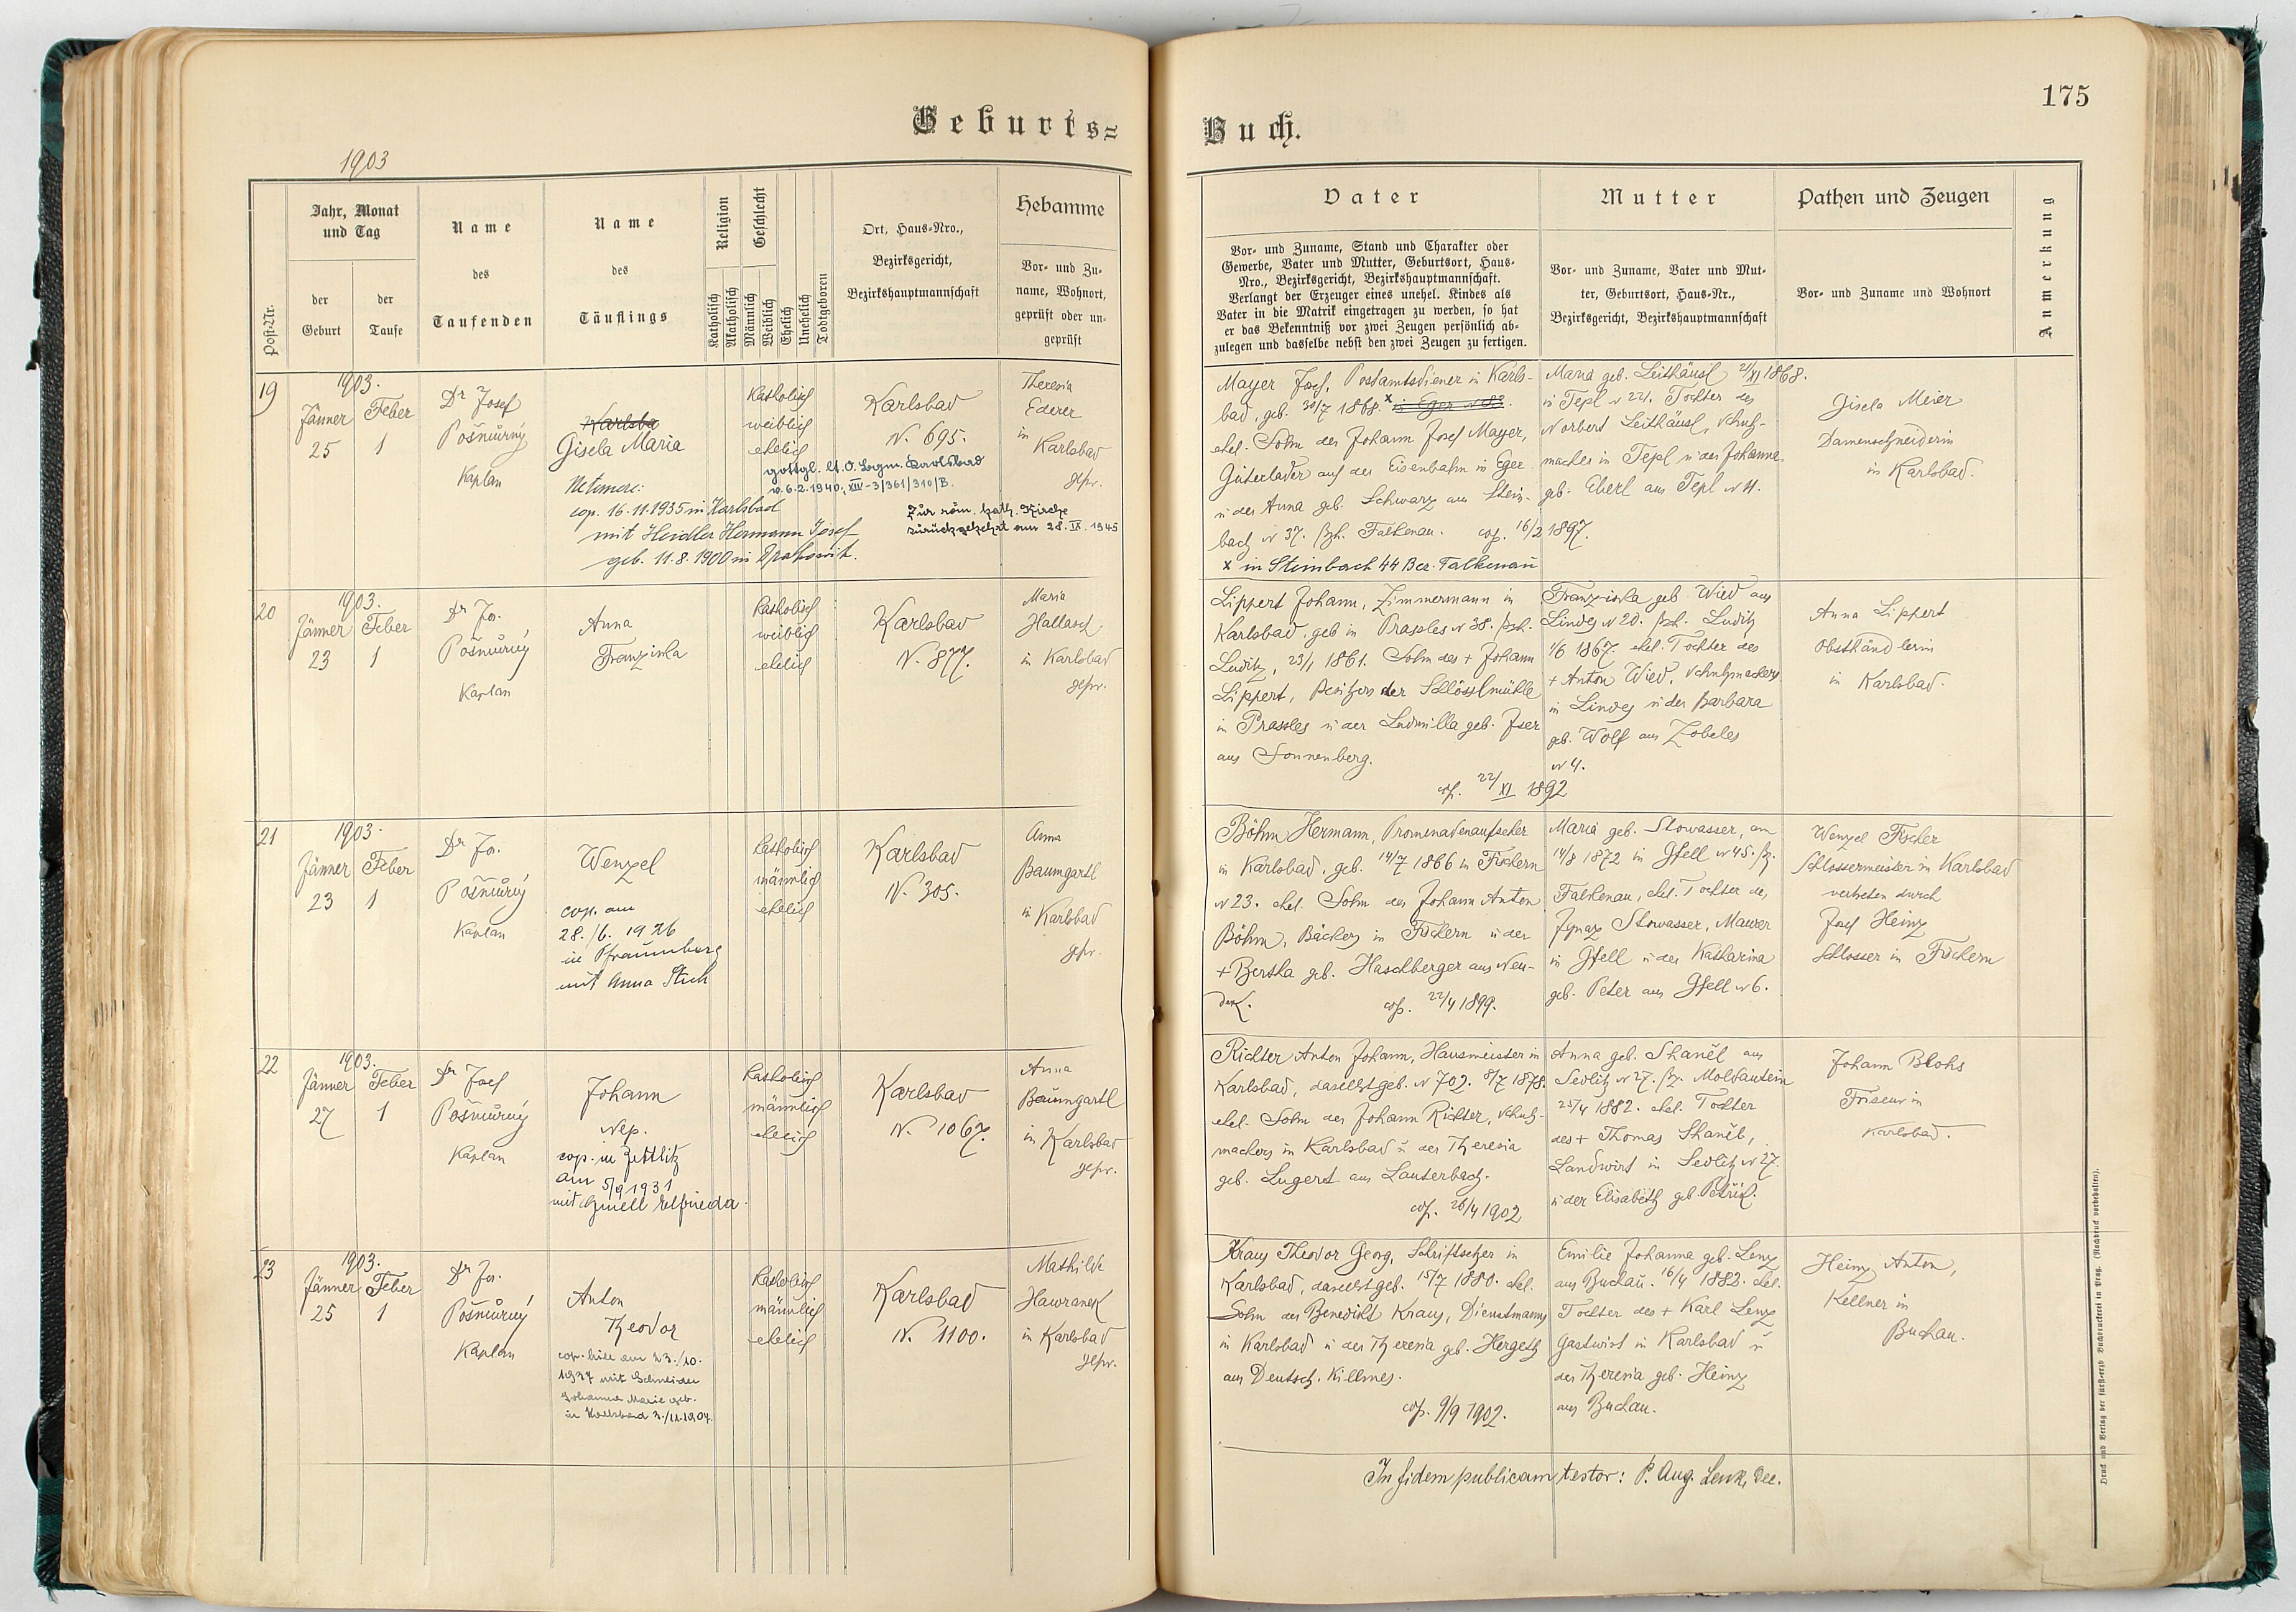 Geburts=
Buch.
175
1903
Post-Nr.
Jahr, Monat
und Tag
der
Geburt
der
Taufe
Name
des
Taufenden
Name
des
Täuflings
Religion
Katholisch
Akatholisch
Geschlecht
Männlich
Weiblich
Ehelich
Unehelich
Todtgeboren
Ort, Haus-Nro.,
Bezirksgericht,
Bezirkshauptmannschaft
Hebamme
Vor- und Zu-
name, Wohnort,
geprüft oder un-
geprüft
Vater
Vor- und Zuname, Stand und Charakter oder
Gewerbe, Vater und Mutter, Geburtsort, Haus-
Nro., Bezirksgericht, Bezirkshauptmannschaft.
Verlangt der Erzeuger eines unehel. Kindes als
Vater in die Matrik eingetragen zu werden, so hat
er das Bekenntniß vor zwei Zeugen persönlich ab-
zulegen und dasselbe nebst den zwei Zeugen zu fertigen.
Mutter
Vor- und Zuname, Vater und Mut-
ter, Geburtsort, Haus-Nr.,
Bezirksgericht, Bezirkshauptmannschaft
Pathen und Zeugen
Vor- und Zuname und Wohnort
Anmerkung
19
1903.
Jänner Feber
25 1
Dr Josef
Pošmůrný
Kaplan
Karlsba
Gisela Maria
cop. 16.11.1935 in Karlsbad
mit Heidler Hermann Josef
geb. 11.8.1900 in
Katholisch
weiblich
ehelich
gottgl. lt. O. Legm. Karlsbad
v. 6.2.1940, XIV-3/361/310/B.
Zur röm. kath. Kirche
zurückgekehrt am 28. IX. 1945
Karlsbad
N. 695.
Theresia
Ederer
in
Karlsbad
gepr.
Mayer Josef, Postamtsdiener in Karls-
bad, geb. 30/7 1868. x in Eger N 82.
ehel. Sohn des Johann Josef Mayer,
Güterlader auf der Eisenbahn in Eger
u der Anna geb. Schwarz aus Stein-
bach N 37. Bzh. Falkenau. cop. 16/2 1897.
x in Steinbach 44 Bez. Falkenau
Maria geb. Leithäusl 21/XI 1868.
in Tepl N 221. Tochter des
Norbert Leithäusl, Schuh-
macher in Tepl u der Johanna
geb. Eberl aus Tepl N 11.
Gisela Meier
Damenschneiderin
in Karlsbad.
20
1903.
Jänner Feber
23 1
Dr Jos.
Pošmůrný
Kaplan
Anna
Franziska
Katholisch
weiblich
ehelich
Karlsbad
N. 877.
Maria
Hallasch
in Karlsbad
gepr.
Lippert Johann, Zimmermann in
Karlsbad, geb in Prassles N 38. Bzh.
Luditz, 23/1 1861. Sohn des + Johann
Lippert, Besitzers der Schlösslmühle
in Prassles u der Ludmilla geb. Iser
aus Sonnenberg.
cop. 22/XI 1892
Franziska geb. Wied aus
Lindes N 20. Bzh. Luditz
1/6 1867. ehel. Tochter des
+ Anton Wied, Schuhmachers
in Lindes u der Barbara
geb. Wolf aus Zobeles
N 4.
Anna Lippert
Obsthändlerin
in Karlsbad.
21
1903.
Jänner Feber
23 1
Dr Jos.
Pošmůrný
Kaplan
Wenzel
cop. am
28./6. 1926
in Pfraumberg
mit Anna Stich
Katholisch
männlich
ehelich
Karlsbad
N. 305.
Anna
Baumgartl
in Karlsbad
gepr.
Böhm Hermann, Promenadenaufseher
in Karlsbad, geb. 14/7 1866 in Fischern
N 23. ehel. Sohn des Johann Anton
Böhm, Bäckers in Fischern u der
+ Bertha geb. Haschberger aus Neu-
dek. cop. 22/4 1899.
Maria geb. Stowasser, am
14/8 1872 in Gfell N 45. Bz.
Falkenau, ehel. Tochter des
Ignaz Stowasser, Maurer
in Gfell u der Katharina
geb. Peter aus Gfell N 6.
Wenzel Fischer
Schlossermeister in Karlsbad
vertreten durch
Josef Heinz
Schlosser in Fischern
22
1903.
Jänner Feber
27 1
Dr Josef
Pošmůrný
Kaplan
Johann
Nep.
cop. in Zettlitz
am 5/9 1931
mit Elfrieda.
Katholisch
männlich
ehelich
Karlsbad
N. 1067.
Anna
Baumgartl
in Karlsbad
gepr.
Richter Anton Johann, Hausmeister in
Karlsbad, daselbst geb. N 702. 8/7 1878.
ehel. Sohn des Johann Richter, Schuh-
machers in Karlsbad u der Theresia
geb. Lugert aus Lauterbach.
cop. 26/4 1902
Anna geb. Shaněl aus
Sedlitz N 27. Bz. Moldautein
25/4 1882. ehel. Tochter
des + Thomas Shaněl,
Landwirt in Sedlitz N 27.
u der Elisabeth geb. Petřík.
Johann Blohs
Friseur in
Karlsbad.
23
1903.
Jänner Feber
25 1
Dr Jos.
Pošmůrný
Kaplan
Anton
Theodor
cop. hier am 23./10.
1937 mit Schneider
Johanna Marie geb.
in Karlsbad 3./11.1904.
Katholisch
männlich
ehelich
Karlsbad
N. 1100.
Mathilde
Hawranek
in Karlsbad
gepr.
Kraus Theodor Georg, Schriftsetzer in
Karlsbad, daselbst geb. 15/7 1880. ehel.
Sohn des Benedikt Kraus, Dienstmanns
in Karlsbad u der Theresia geb. Hergeth
aus Deutsch. Killmes.
cop. 9/9 1902.
Emilie Johanna geb. Lenz
aus Buchau. 16/4 1882. ehel.
Tochter des + Karl Lenz
Gastwirt in Karlsbad u
der Theresia geb. Heinz
aus Buchau.
Heinz Anton,
Kellner in
Buchau.
In fidem publicam testor: P. Aug. Lenk, Dec.
Druck und Verlag der fürst-erzb. Buchdruckerei in Prag. (Nachdruck vorbehalten).